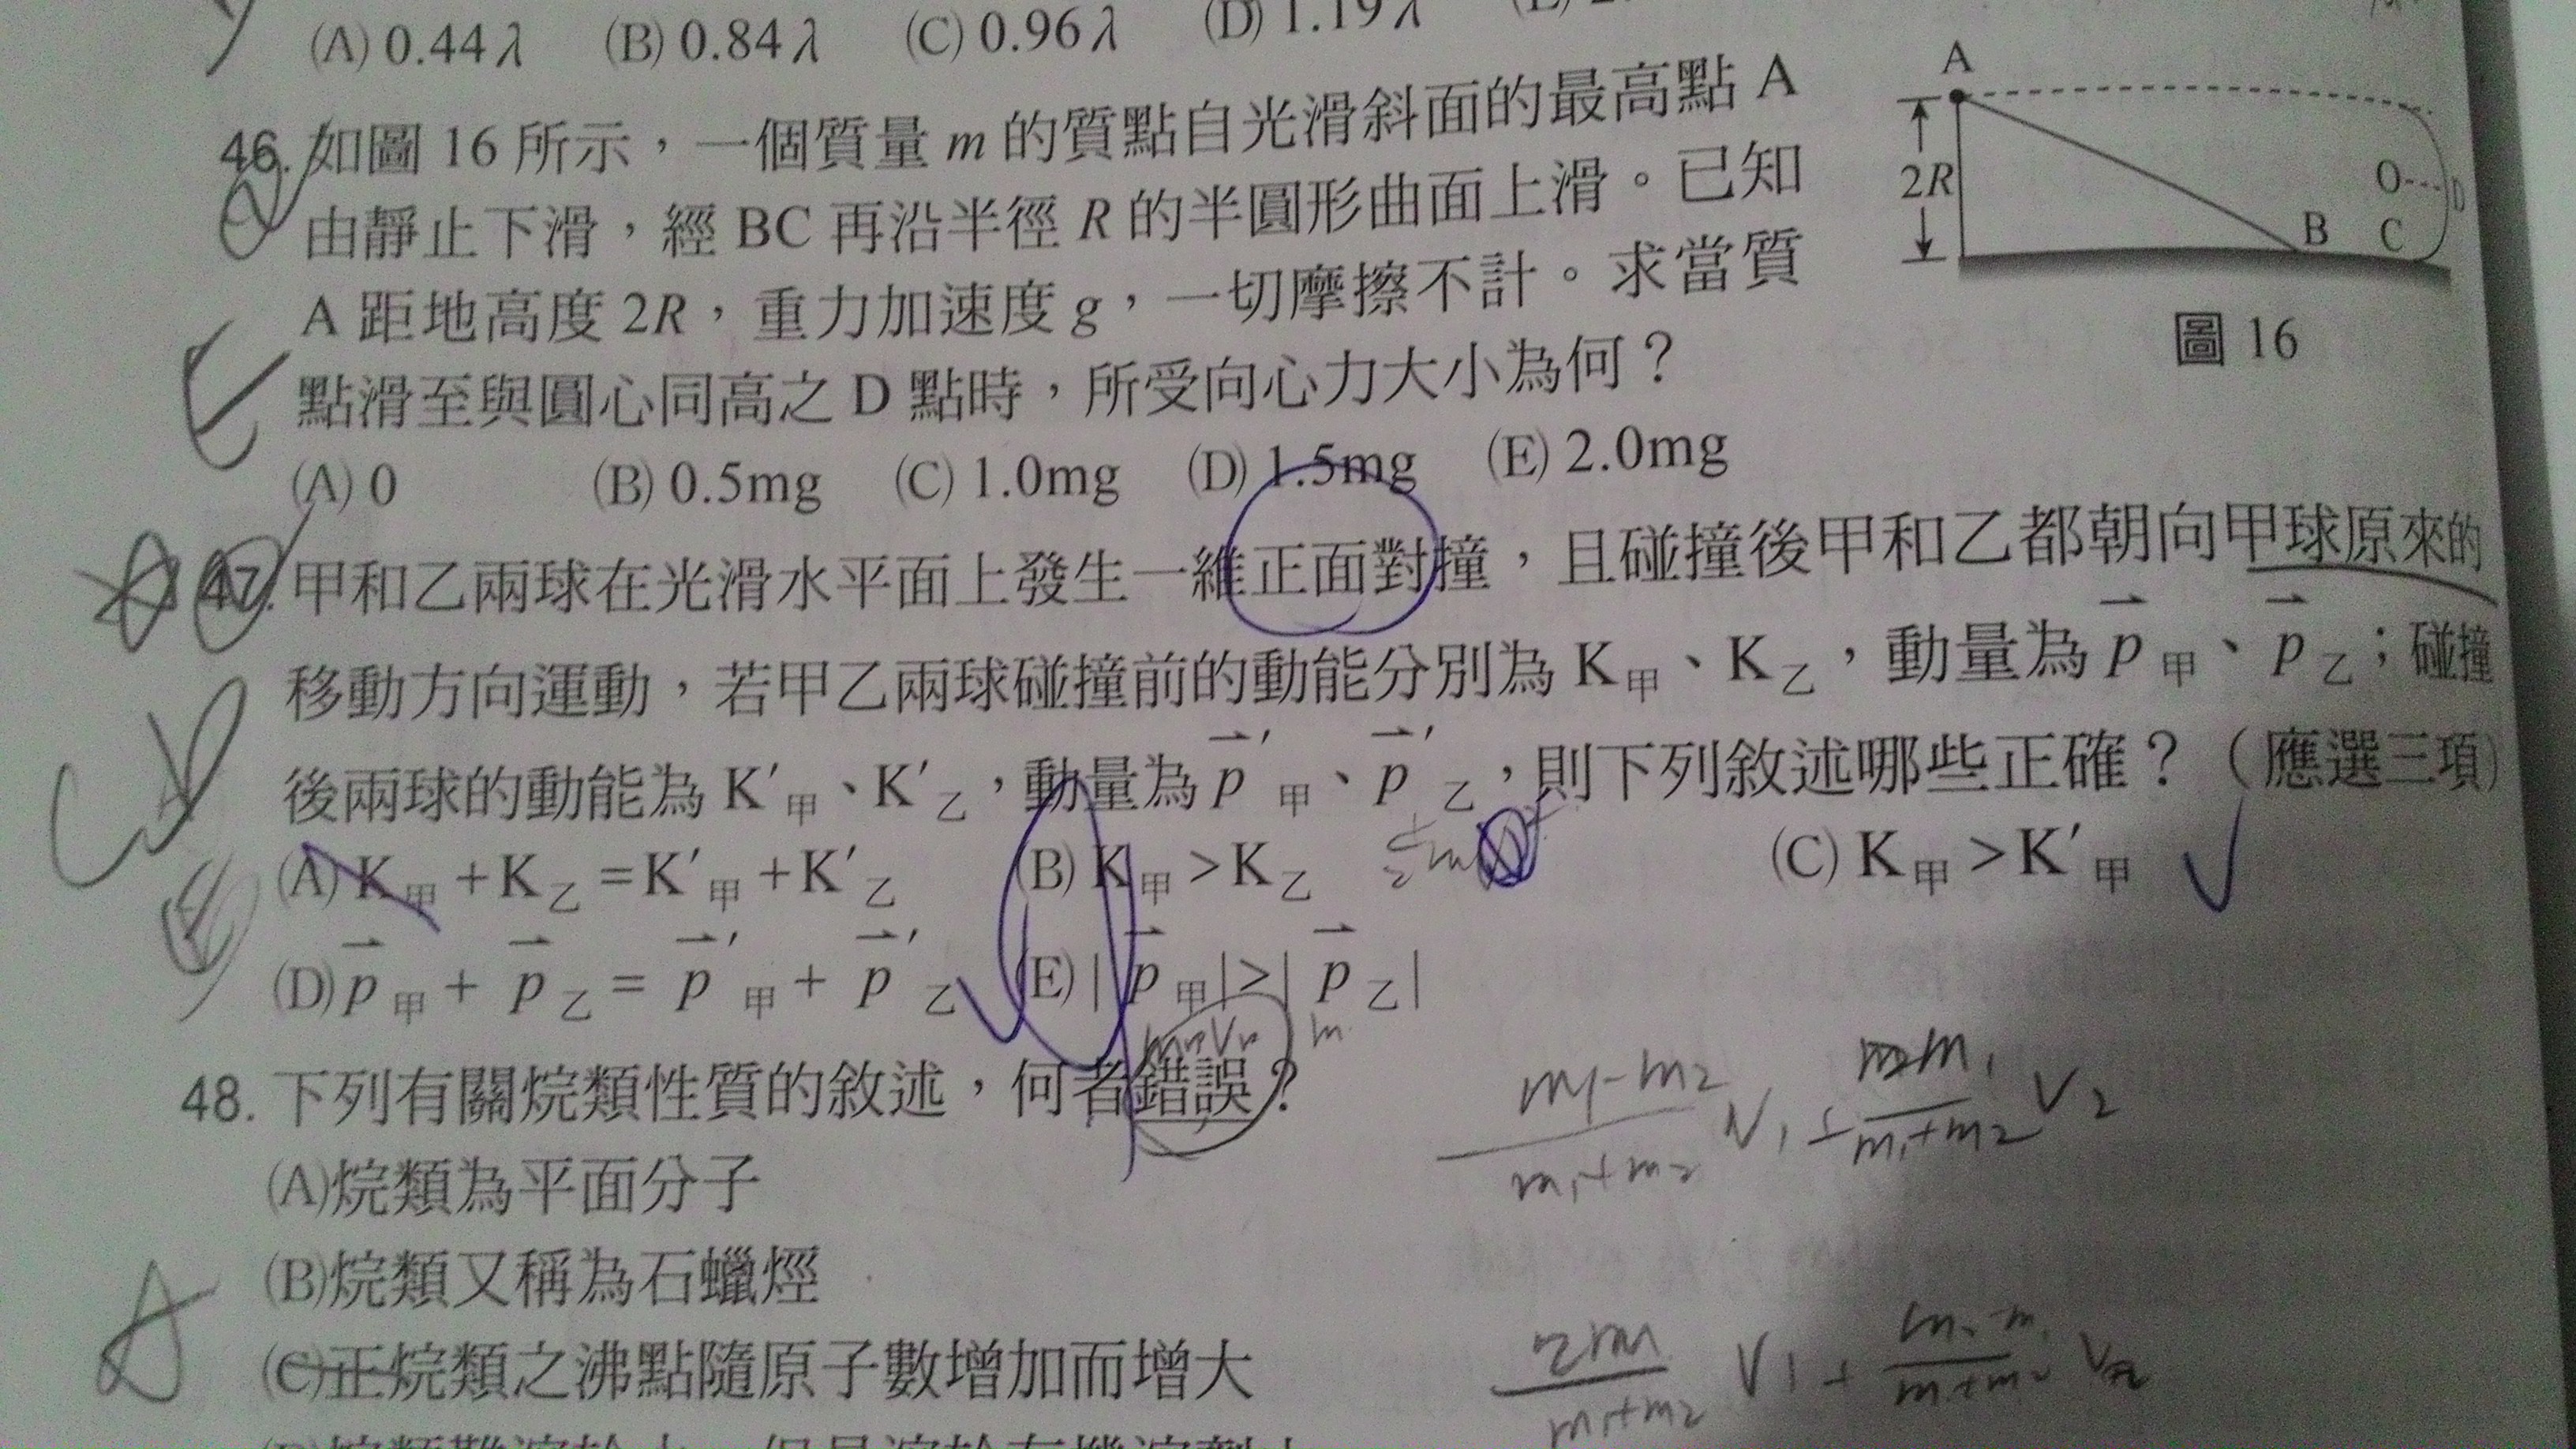 (A) 0.44λ (B) 0.84λ (C) 0.96λ (D) 1.19λ
46. 如圖 16 所示，一個質量 m 的質點自光滑斜面的最高點 A
由靜止下滑，經 BC 再沿半徑 R 的半圓形曲面上滑。已知
A 距地高度 2R，重力加速度 g，一切摩擦不計。求當質
點滑至與圓心同高之 D 點時，所受向心力大小為何？
(A) 0 (B) 0.5mg (C) 1.0mg (D) 1.5mg (E) 2.0mg
A
2R
O
D
B
C
圖 16
47. 甲和乙兩球在光滑水平面上發生一維正面對撞，且碰撞後甲和乙都朝向甲球原來的
移動方向運動，若甲乙兩球碰撞前的動能分別為 K甲、K乙，動量為 p⃗甲、p⃗乙；碰撞
後兩球的動能為 K′甲、K′乙，動量為 p⃗′甲、p⃗′乙，則下列敘述哪些正確？（應選三項）
(A) K甲 + K乙 = K′甲 + K′乙 (B) K甲 > K乙 (C) K甲 > K′甲
(D) p⃗甲 + p⃗乙 = p⃗′甲 + p⃗′乙 (E) | p⃗甲 | > | p⃗乙 |
m1-m2
m1+m2
V1
m1+m2
V2
48. 下列有關烷類性質的敘述，何者錯誤？
(A)烷類為平面分子
(B)烷類又稱為石蠟烴
(C)正烷類之沸點隨原子數增加而增大
2m
m1+m2
V1 +
A